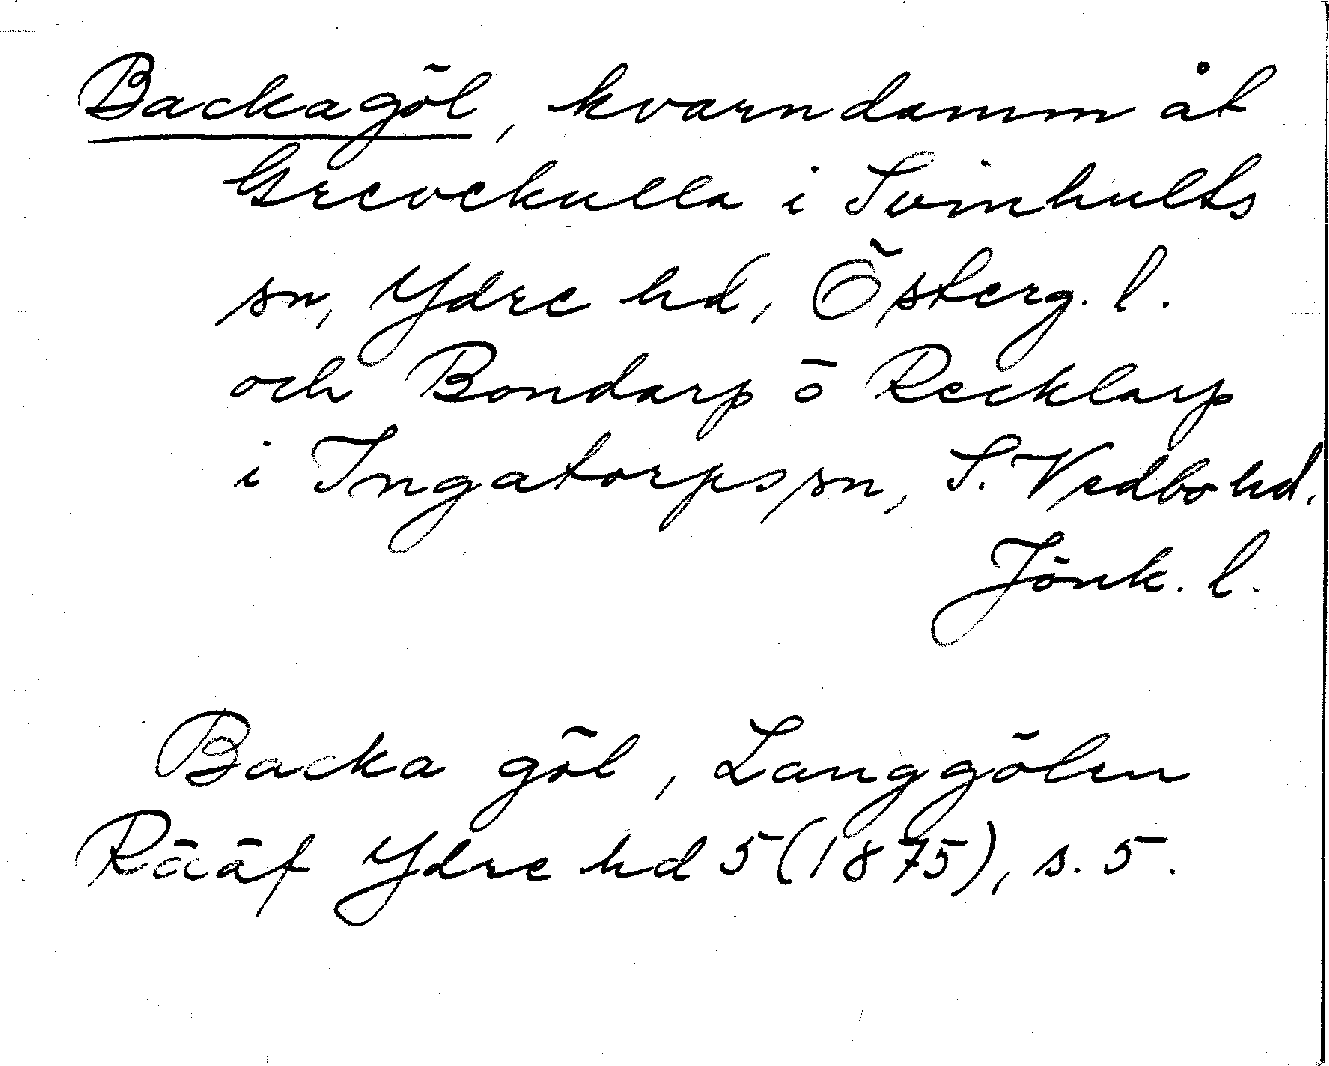 Backagöl, kvarndamm åt
Grevekulla i Svinhults
sn, Ydre hd, Österg. l.
och Bondarp ö Recklarp
i Ingatorps sn, S. Vedbo hd.
Jönk. l.
Backa göl, Langgölen
Rääf Ydre hd 5 (1875), s. 5.